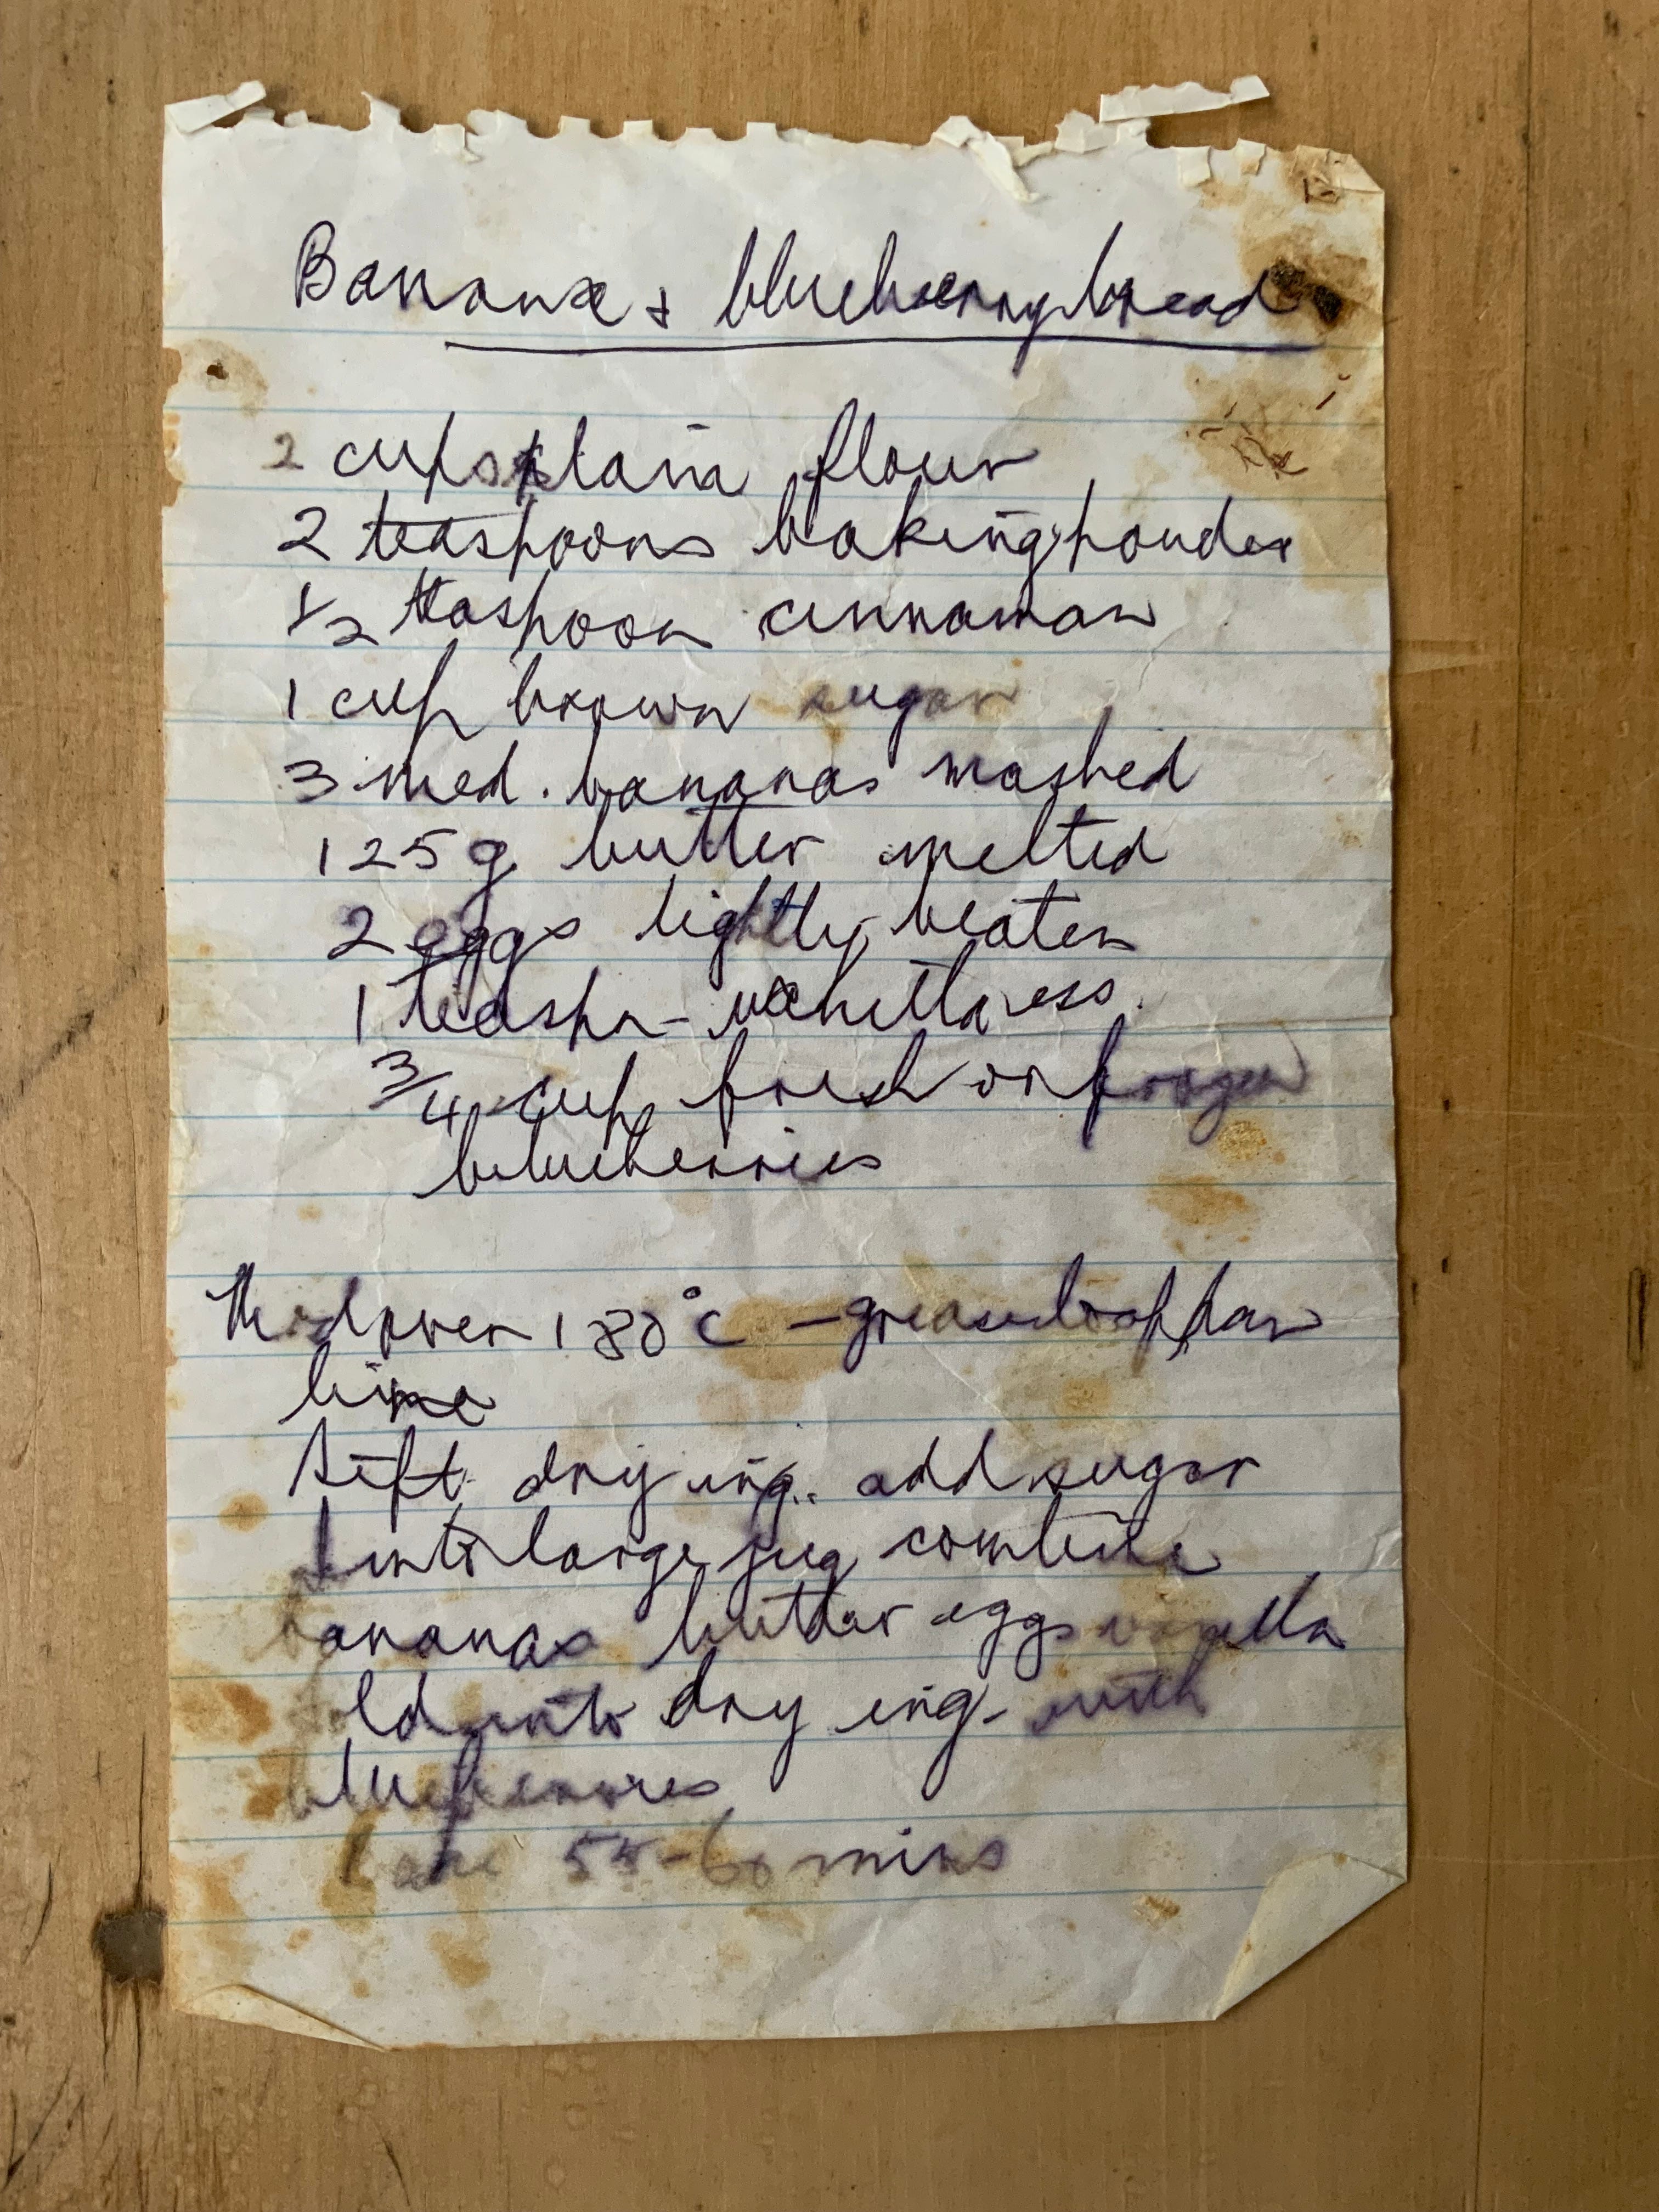 Banana & blueberry bread
2 cups plain flour
2 teaspoons baking powder
1/2 teaspoon cinnamon
1 cup brown sugar
3 med. bananas mashed
125g butter melted
2 eggs lightly beaten
1 teaspn - vanilla ess.
3/4 cup fresh or frozen
blueberries
oven 180°C - grease loaf pan
line
Sift dry ing.. add sugar
into large jug combine
bananas butter eggs vanilla
fold into dry ing - with
blueberries
bake 55-60 mins